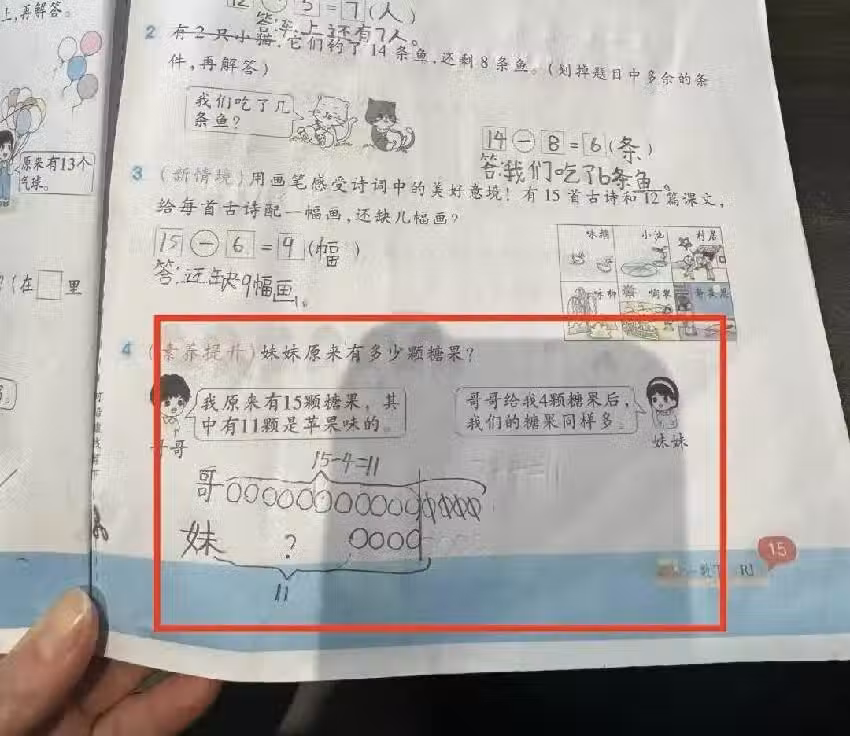 上,再解答。
12 - 5 = 7 (人)
答:车上还有7人。
2 有2只小猫,它们钓了14条鱼,还剩8条鱼。(划掉题目中多余的条
件,再解答)
我们吃了几
条鱼?
14 - 8 = 6 (条)
答:我们吃了6条鱼。
原来有13个
气球。
3 (新情境)用画笔感受诗词中的美好意境!有15首古诗和12篇课文,
给每首古诗配一幅画,还缺几幅画?
15 - 6 = 9 (幅)
答:还缺9幅画。
咏鹅
小池
村居
咏柳
?(在 里
4 (素养提升)妹妹原来有多少颗糖果?
我原来有15颗糖果,其
中有11颗是苹果味的。
哥哥
哥哥给我4颗糖果后,
我们的糖果同样多。
妹妹
15-4=11
哥
妹 ?
11
15
RJ